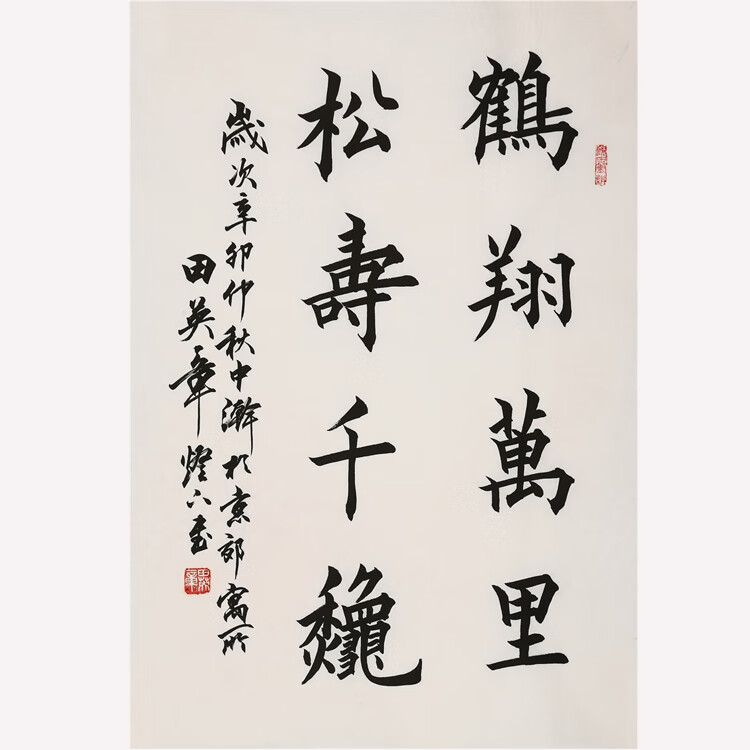 鶴翔萬里
松壽千龝
歲次辛卯仲秋中澣於京郊寓所
田英章燈下書